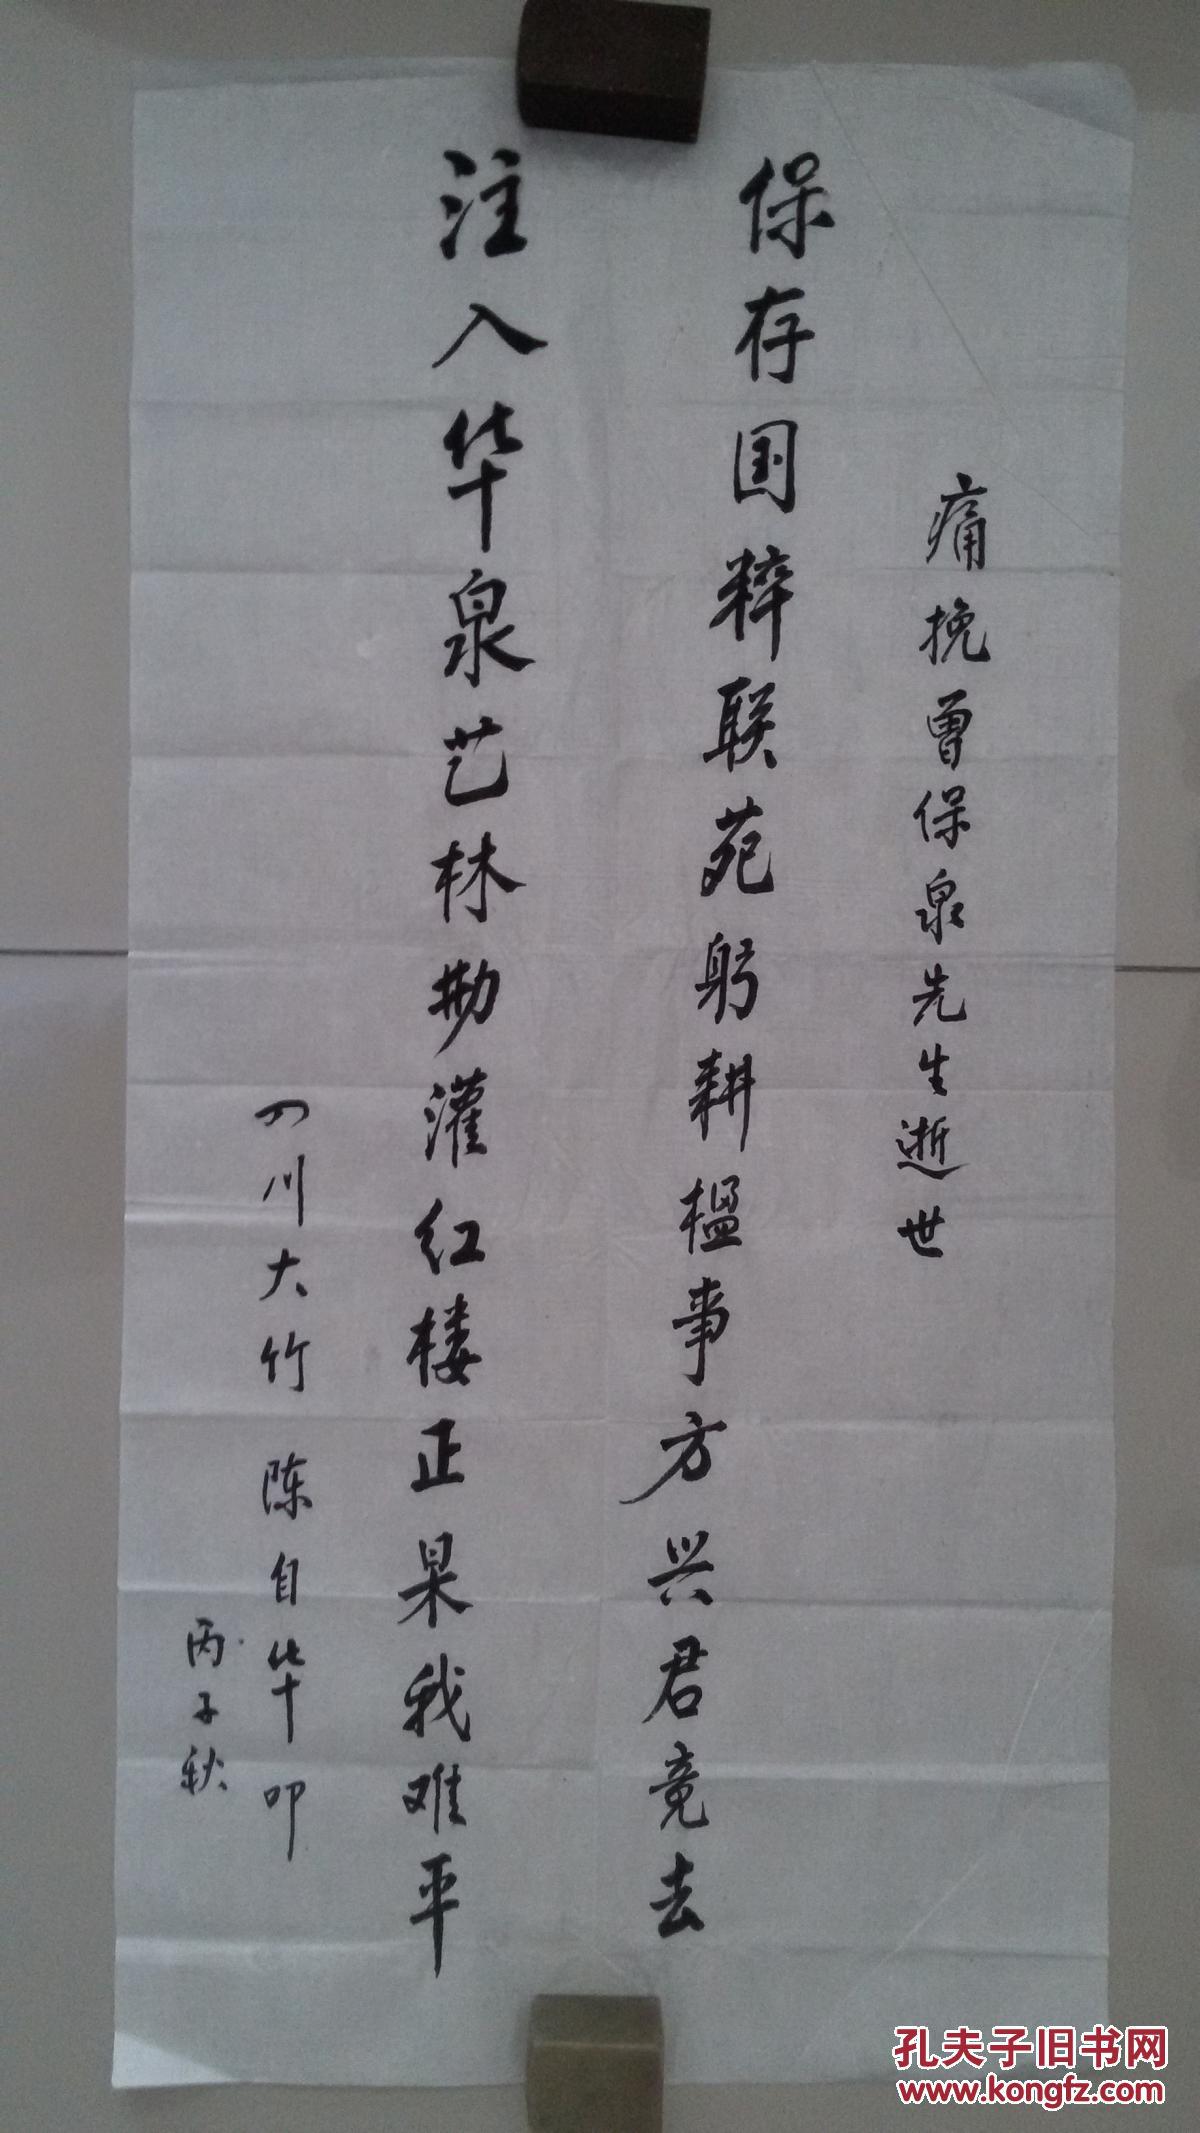 痛挽曾保泉先生逝世
保存国粹联苑躬耕楹事方兴君竟去
注入华泉艺林勤灌红楼正果我难平
四川大竹 陈自华叩
丙子秋
孔夫子旧书网
www.kongfz.com